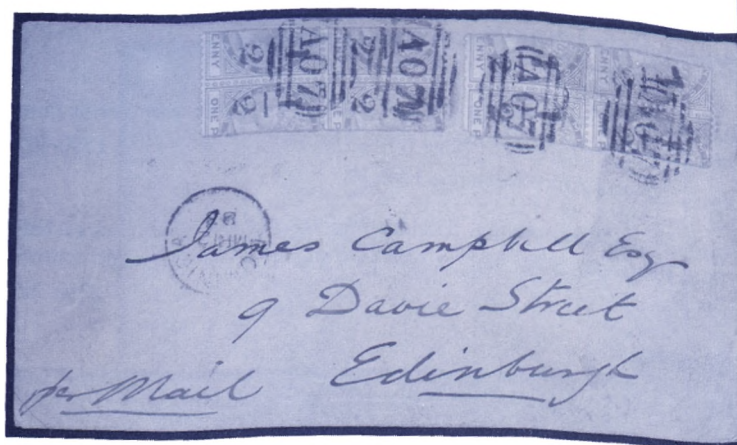 ENNY ONE P
1/2 1/2
A07 A07 A07 A07
James Campbell Esq
9 Davie Street
Edinburgh
per Mail